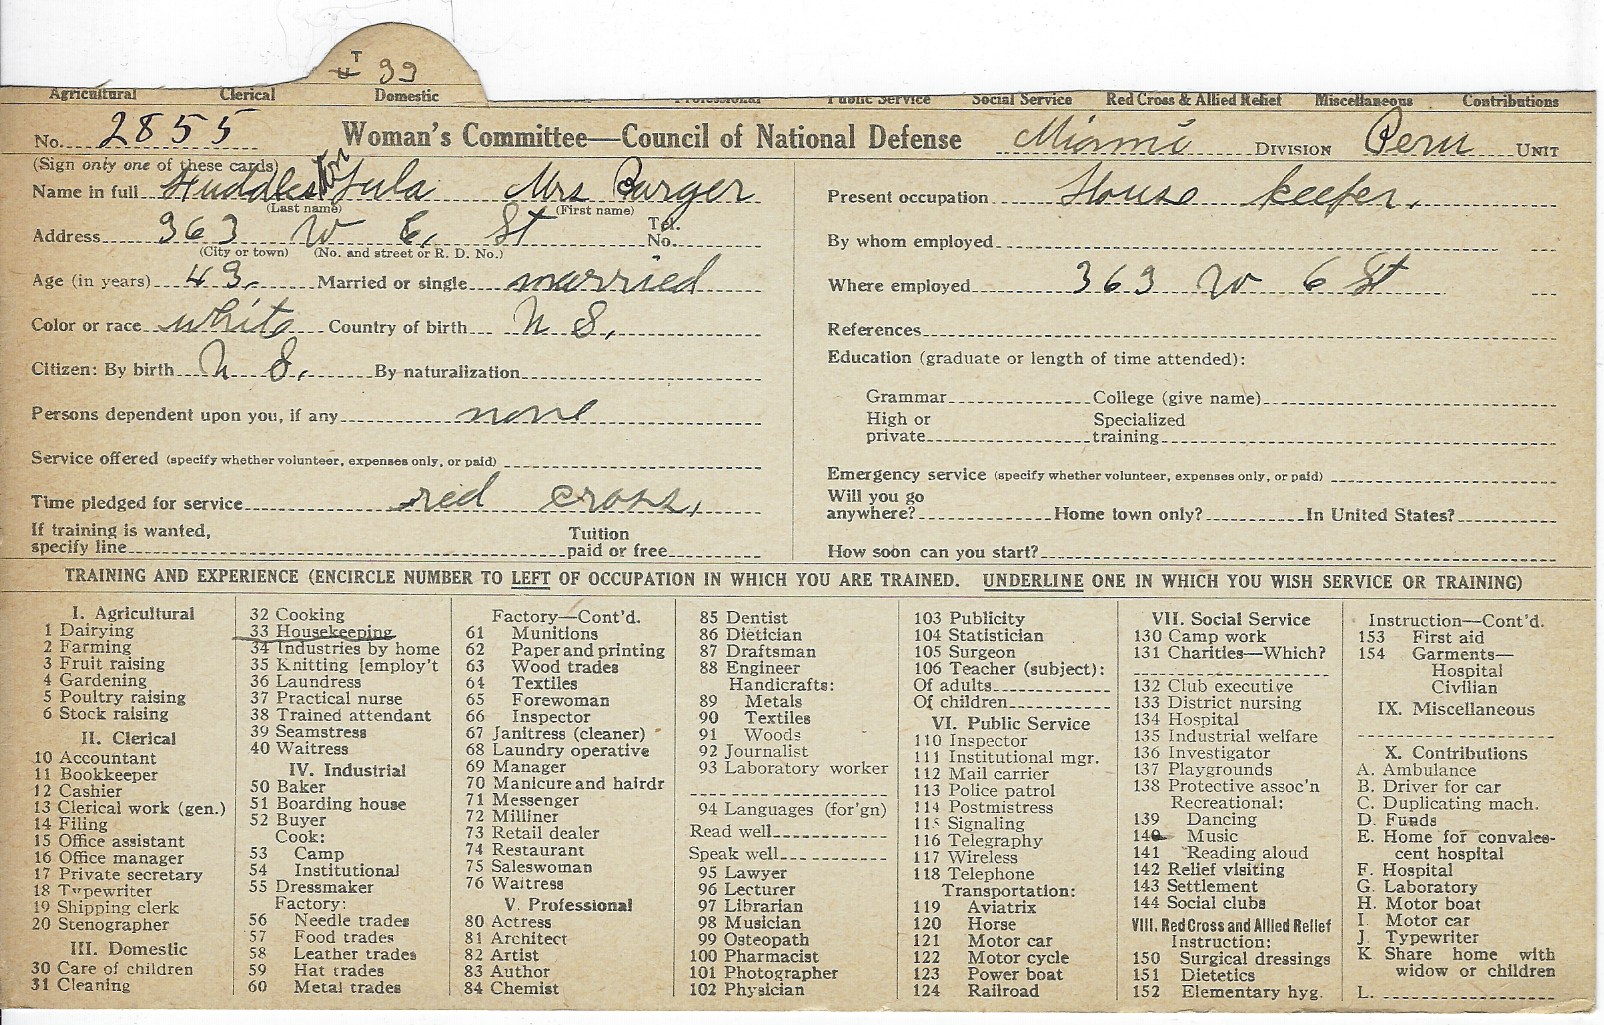 T
33
Agricultural Clerical Domestic Professional Public Service Social Service Red Cross & Allied Relief Miscellaneous Contributions
No. 2855 Woman's Committee—Council of National Defense Miami DIVISION Peru UNIT
(Sign only one of these cards)
Name in full Huddleston Lula Mrs Burger
(Last name) (First name)
Address 363 W 6, St Tel. No.
(City or town) (No. and street or R. D. No.)
Age (in years) 43. Married or single married
Color or race white Country of birth U S,
Citizen: By birth U S, By naturalization
Persons dependent upon you, if any none
Service offered (specify whether volunteer, expenses only, or paid)
Time pledged for service red cross,
If training is wanted, specify line Tuition paid or free
Present occupation House keeper.
By whom employed
Where employed 363 W 6 St
References
Education (graduate or length of time attended):
Grammar College (give name)
High or private Specialized training
Emergency service (specify whether volunteer, expenses only, or paid)
Will you go anywhere? Home town only? In United States?
How soon can you start?
TRAINING AND EXPERIENCE (ENCIRCLE NUMBER TO LEFT OF OCCUPATION IN WHICH YOU ARE TRAINED. UNDERLINE ONE IN WHICH YOU WISH SERVICE OR TRAINING)
I. Agricultural
1 Dairying
2 Farming
3 Fruit raising
4 Gardening
5 Poultry raising
6 Stock raising
II. Clerical
10 Accountant
11 Bookkeeper
12 Cashier
13 Clerical work (gen.)
14 Filing
15 Office assistant
16 Office manager
17 Private secretary
18 Typewriter
19 Shipping clerk
20 Stenographer
III. Domestic
30 Care of children
31 Cleaning
32 Cooking
33 Housekeeping
34 Industries by home
35 Knitting [employ't
36 Laundress
37 Practical nurse
38 Trained attendant
39 Seamstress
40 Waitress
IV. Industrial
50 Baker
51 Boarding house
52 Buyer
Cook:
53 Camp
54 Institutional
55 Dressmaker
Factory:
56 Needle trades
57 Food trades
58 Leather trades
59 Hat trades
60 Metal trades
Factory—Cont'd.
61 Munitions
62 Paper and printing
63 Wood trades
64 Textiles
65 Forewoman
66 Inspector
67 Janitress (cleaner)
68 Laundry operative
69 Manager
70 Manicure and hairdr
71 Messenger
72 Milliner
73 Retail dealer
74 Restaurant
75 Saleswoman
76 Waitress
V. Professional
80 Actress
81 Architect
82 Artist
83 Author
84 Chemist
85 Dentist
86 Dietician
87 Draftsman
88 Engineer
Handicrafts:
89 Metals
90 Textiles
91 Woods
92 Journalist
93 Laboratory worker
94 Languages (for'gn)
Read well
Speak well
95 Lawyer
96 Lecturer
97 Librarian
98 Musician
99 Osteopath
100 Pharmacist
101 Photographer
102 Physician
103 Publicity
104 Statistician
105 Surgeon
106 Teacher (subject):
Of adults
Of children
VI. Public Service
110 Inspector
111 Institutional mgr.
112 Mail carrier
113 Police patrol
114 Postmistress
115 Signaling
116 Telegraphy
117 Wireless
118 Telephone
Transportation:
119 Aviatrix
120 Horse
121 Motor car
122 Motor cycle
123 Power boat
124 Railroad
VII. Social Service
130 Camp work
131 Charities—Which?
132 Club executive
133 District nursing
134 Hospital
135 Industrial welfare
136 Investigator
137 Playgrounds
138 Protective assoc'n
Recreational:
139 Dancing
140 Music
141 Reading aloud
142 Relief visiting
143 Settlement
144 Social clubs
VIII. Red Cross and Allied Relief
Instruction:
150 Surgical dressings
151 Dietetics
152 Elementary hyg.
Instruction—Cont'd.
153 First aid
154 Garments—
Hospital
Civilian
IX. Miscellaneous
X. Contributions
A. Ambulance
B. Driver for car
C. Duplicating mach.
D. Funds
E. Home for convales-
cent hospital
F. Hospital
G. Laboratory
H. Motor boat
I. Motor car
J. Typewriter
K Share home with
widow or children
L.